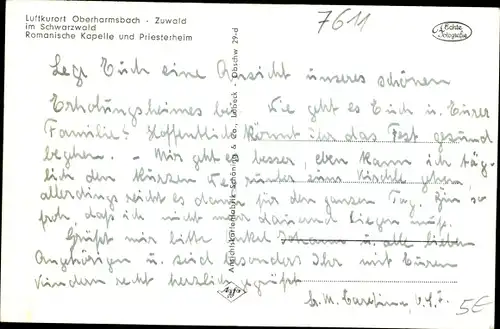 Luftkurort Oberharmsbach · Zuwald
im Schwarzwald
Romanische Kapelle und Priesterheim
7611
Echte Fotografie
Lege Euch eine Ansicht unseres schönen
Erholungsheimes bei. Wie geht es Euch u. Eurer
Familie? Hoffentlich könnt ihr das Fest gesund
begehen. - Mir geht es besser, eben kann ich täg-
lich den kurzen Weg runter zum Kirchle gehen,
allerdings reicht es dann für den ganzen Tag. Bin so
froh, daß ich nicht mehr dauernd liegen muß.
Grüßt mir bitte Onkel Johann u. alle lieben
Angehörigen u. seid besonders Ihr mit Euren
Kindern recht herzlich gegrüßt
Sr. M. Carolina,
Ansichtskartenfabrik Schöning & Co., Lübeck · Obschw 29-d
Agfa
5€